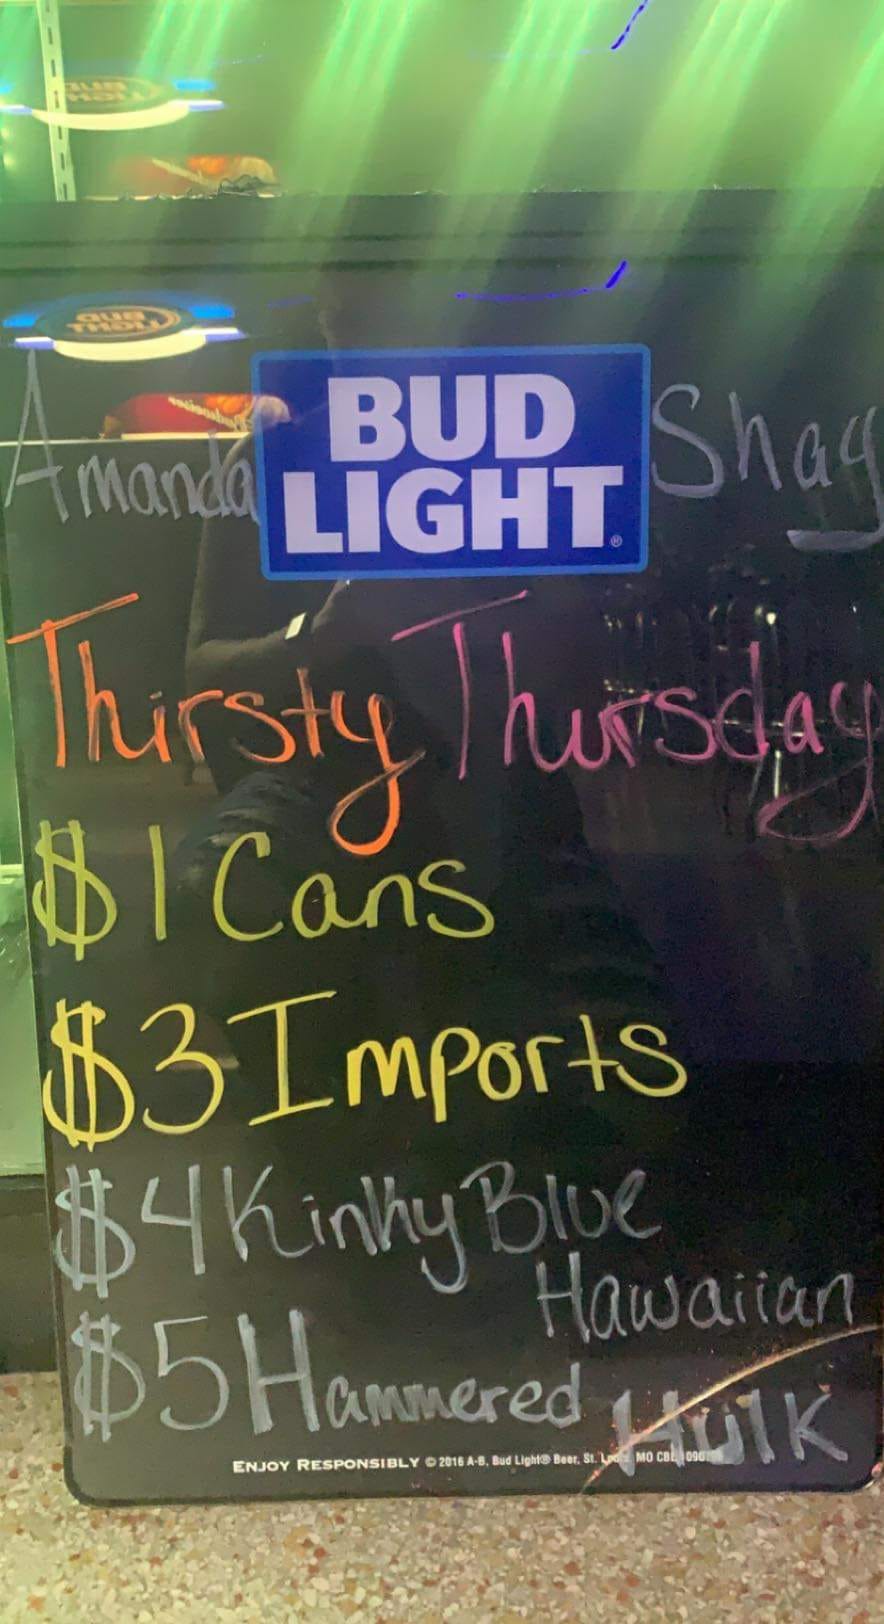 BUD
LIGHT
Budweiser
Amanda BUD Shay
LIGHT®
Thirsty Thursday
$1 Cans
$3 Imports
$4 Kinky Blue
Hawaiian
$5 Hammered Hulk
ENJOY RESPONSIBLY © 2016 A-B, Bud Light® Beer, St. Louis, MO